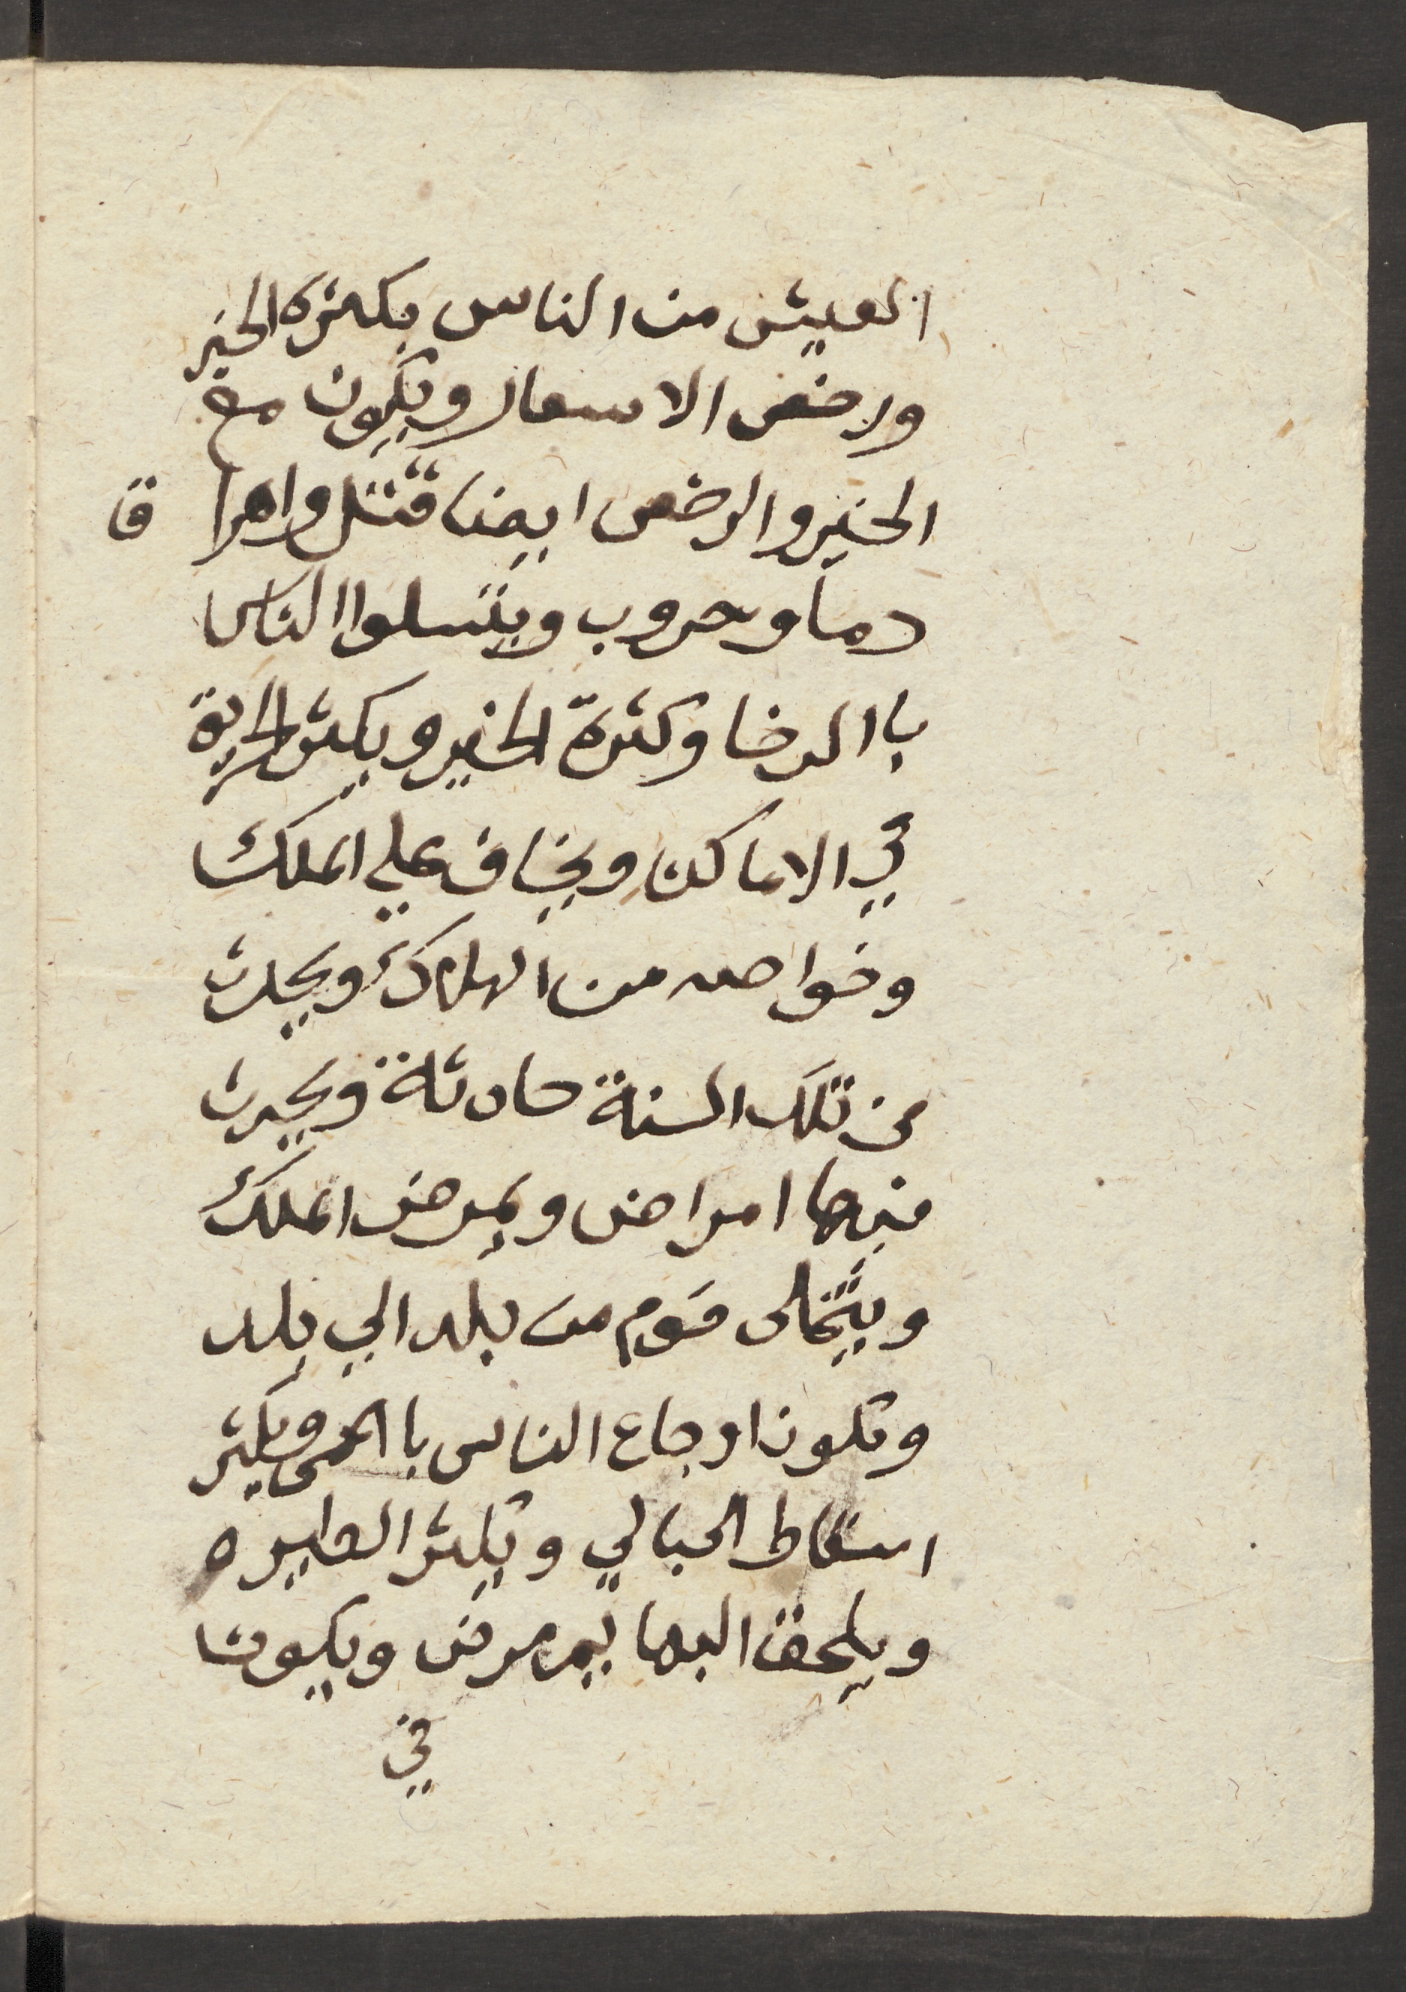 العيش من الناس بكثرة الخير
ورخص الاسعار ويكون مع
الخير والرخص ايضا قتل واهرا ق
دما وحروب ويتسلوا الناس
باالرخا وكثرة الخير ويكثر الحراية
في الاماكن ويخاف علي الملك
وخواصه من الهلاك ويحدث
في تلك السنة حادثة ويحدث
فيها امراض ويمرض الملك
ويتخلى قوم من بلد الي بلد
وتكون اوجاع الناس باالحمى ويكثر
اسقاط الحبالي ويكثر الطايره
ويلحق البهايم مرض ويكون
في